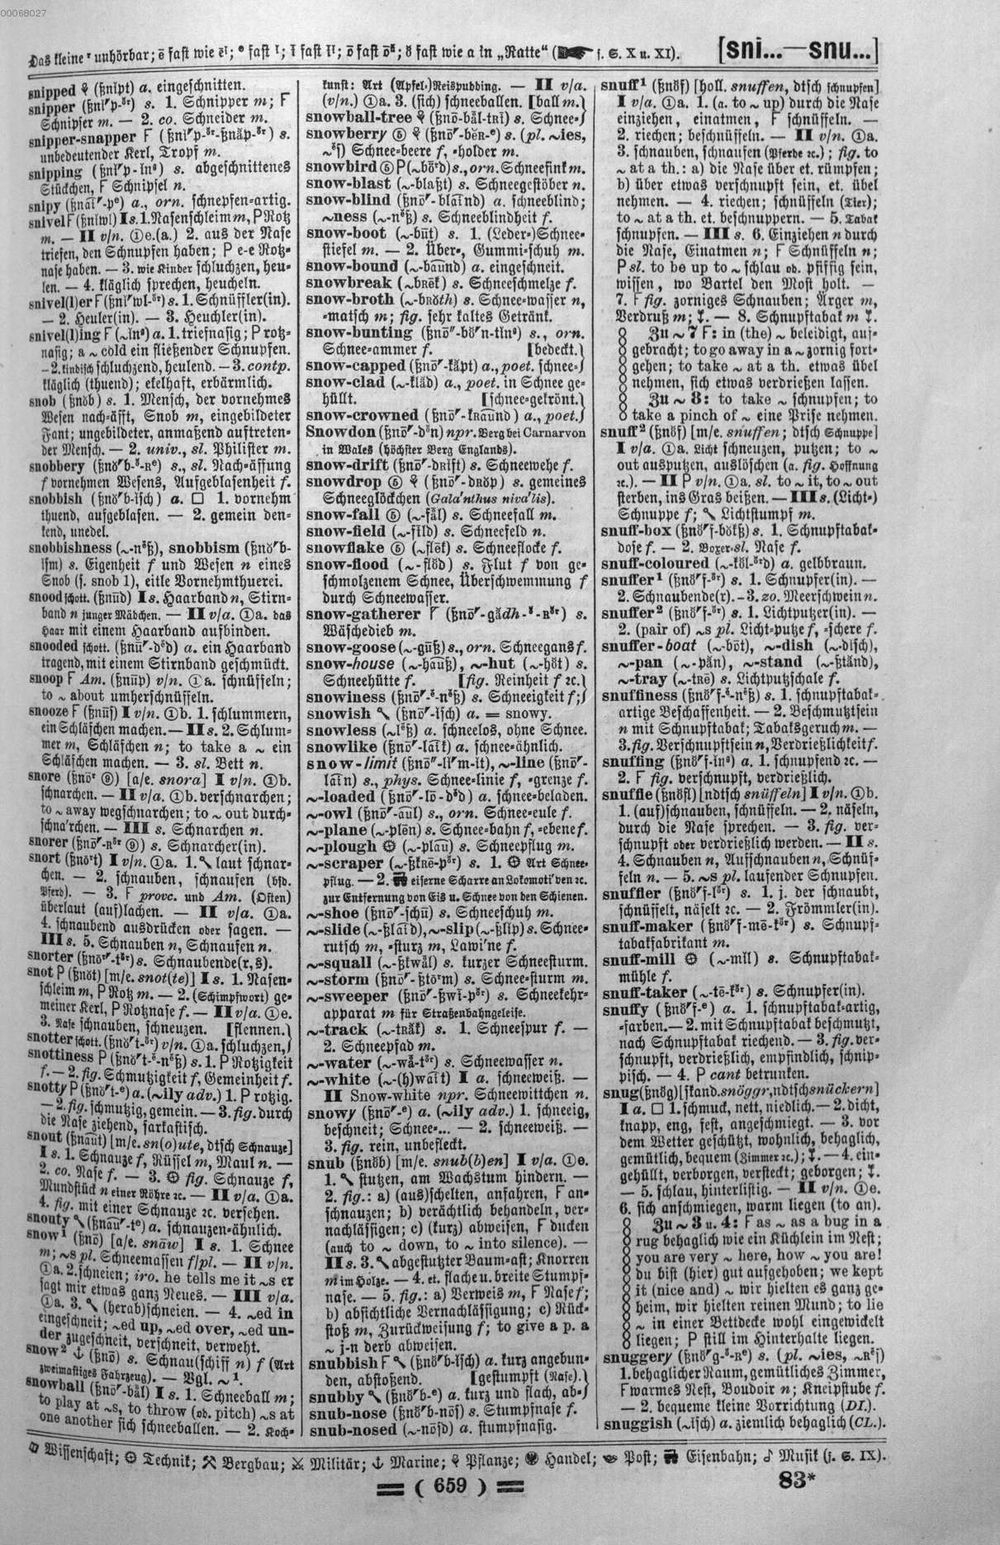 00068027
Das kleine ʳ unhörbar; ē fast wie ēⁱ; ᵉ fast ⁱ; ī fast īⁱ; ō fast ōᵘ; ă fast wie a in „Ratte“ (☛ s. S. X u. XI). [sni...—snu...]
snipped ♀ (ßnĭpt) a. eingeschnitten.
snipper (ßnĭʹp-ᵉʳ) s. 1. Schnipper m; F
Schnipser m. — 2. co. Schneider m.
snipper-snapper F
unbedeutender Kerl, Tropf m.
snipping (ßnĭʹp-ĭnᵍ) s. abgeschnittenes
Stückchen, F Schnipsel n.
snipy a., orn. schnepfen-artig.
snivel F I s. 1. Nasenschleim m, P Rotz
m. — II v/n. ①e.(a.) 2. aus der Nase
triefen, den Schnupfen haben; P e-e Rotz-
nase haben. — 3. wie Kinder schluchzen, heu-
len. — 4. kläglich sprechen, heucheln.
snivel(l)er F s. 1. Schnüffler(in).
— 2. Heuler(in). — 3. Heuchler(in).
snivel(l)ing F (~ĭnᵍ) a. 1. triefnasig; P rotz-
nasig; a ~ cold ein fließender Schnupfen.
— 2. kindisch schluchzend, heulend. — 3. contp.
kläglich (thuend); ekelhaft, erbärmlich.
snob (ßnŏb) s. 1. Mensch, der vornehmes
Wesen nach-äfft, Snob m, eingebildeter
Fant; ungebildeter, anmaßend auftreten-
der Mensch. — 2. univ., sl. Philister m.
snobbery s., sl. Nach-äffung
f vornehmen Wesens, Aufgeblasenheit f.
snobbish (ßnŏʹb-ĭsch) a. □ 1. vornehm
thuend, aufgeblasen. — 2. gemein den-
kend, unedel.
snobbishness (~-nᵉß), snobbism (ßnŏʹb-
ĭsm) s. Eigenheit f und Wesen n eines
Snob (s. snob 1), eitle Vornehmthuerei.
snood schott. (ßnūd) I s. Haarband n, Stirn-
band n junger Mädchen. — II v/a. ①a. das
Haar mit einem Haarband aufbinden.
snooded schott. (ßnūʹ-dᵉd) a. ein Haarband
tragend, mit einem Stirnband geschmückt.
snoop F Am. (ßnūp) v/n. ①a. schnüffeln;
to ~ about umherschnüffeln.
snooze F (ßnūf) I v/n. ①b. 1. schlummern,
ein Schläfchen machen. — II s. 2. Schlum-
mer m, Schläfchen n; to take a ~ ein
Schläfchen machen. — 3. sl. Bett n.
snore [a/e. snora] I v/n. ①b.
schnarchen. — II v/a. ①b. verschnarchen;
to ~ away wegschnarchen; to ~ out durch-
schnaʹrchen. — III s. Schnarchen n.
snorer s. Schnarcher(in).
snort (ßnōʳt) I v/n. ①a. 1. laut schnar-
chen. — 2. schnauben, schnaufen (bsd.
Pferd). — 3. F provc. und Am. (Osten)
überlaut (auf)lachen. — II v/a. ①a.
4. schnaubend ausdrücken oder sagen. —
III s. 5. Schnauben n, Schnaufen n.
snorter s. Schnaubende(r, s).
snot P (ßnŏt) [m/e. snot(te)] I s. 1. Nasen-
schleim m, P Rotz m. — 2. (Schimpfwort) ge-
meiner Kerl, P Rotznase f. — II v/a. ①e.
3. Nase schnauben, schneuzen. [flennen.]
snotter schott. v/n. ①a. schluchzen,
snottiness P s. 1. P Rotzigkeit
f. — 2. fig. Schmutzigkeit f, Gemeinheit f.
snotty P a. (~ily adv.) 1. P rotzig.
— 2. fig. schmutzig, gemein. — 3. fig. durch
die Nase ziehend, sarkastisch.
snout (ßnaut) [m/e. sn(o)ute, dtsch Schnauze]
I s. 1. Schnauze f, Rüssel m, Maul n. —
2. co. Nase f. — 3. ⚙ fig. Schnauze f,
Mundstück n einer Röhre ꝛc. — II v/a. ①a.
4. fig. mit einer Schnauze ꝛc. versehen.
snouty a. schnauzen-ähnlich.
snow¹ (ßnō) [a/e. snāw] I s. 1. Schnee
m; ~s pl. Schneemassen f/pl. — II v/n.
①a. 2. schneien; iro. he tells me it ~s er
sagt mir etwas ganz Neues. — III v/a.
①a. 3. (herab)schneien. — 4. ~ed in
eingeschneit; ~ed up, ~ed over, ~ed un-
der zugeschneit, verschneit, verweht.
snow² ⚓ (ßnō) s. Schnau(schiff n) f (Art
zweimastiges Fahrzeug). — Vgl. ~¹.
snowball (ßnōʹ-bål) I s. 1. Schneeball m;
to play at ~s, to throw (ob. pitch) ~s at
one another sich schneeballen. — 2. Koch-
kunst: Art (Apfel-)Reispudding. — II v/a.
(v/n.) ①a. 3. (sich) schneeballen. [ball m.]
snowball-tree ♀ (ßnō-bål-trī) s. Schnee-
snowberry ♀ s. (pl. ~ies,
Schnee-beere f, -holder m.
snowbird P s., orn. Schneefink m.
snow-blast (~-blaßt) s. Schneegestöber n.
snow-blind (ßnōʹ-blaīnd) a. schneeblind;
~ness (~-nᵉß) s. Schneeblindheit f.
snow-boot (~-būt) s. 1. (Leder-)Schnee-
stiefel m. — 2. Über-, Gummi-schuh m.
snow-bound (~-baūnd) a. eingeschneit.
snowbreak s. Schneeschmelze f.
snow-broth s. Schnee-wasser n,
-matsch m; fig. sehr kaltes Getränk.
snow-bunting s., orn.
Schnee-ammer f. [bedeckt.]
snow-capped (ßnōʹ-kăpt) a., poet. schnee-
snow-clad (~-klăd) a., poet. in Schnee ge-
hüllt. [schnee-gekrönt.]
snow-crowned (ßnōʹ-kraūnd) a., poet.
Snowdon (ßnōʹ-dᵉn) npr. Berg bei Carnarvon
in Wales (höchster Berg Englands).
snow-drift (ßnōʹ-drĭft) s. Schneewehe f.
snowdrop ♀ (ßnōʹ-drŏp) s. gemeines
Schneeglöckchen (Galaʹnthus nivaʹlis).
snow-fall (~-fål) s. Schneefall m.
snow-field (~-fīld) s. Schneefeld n.
snowflake (~flēk) s. Schneeflocke f.
snow-flood (~-flŏd) s. Flut f von ge-
schmolzenem Schnee, Überschwemmung f
durch Schneewasser.
snow-gatherer s.
Wäschedieb m.
snow-goose (~-gūß) s., orn. Schneegans f.
snow-house (~-haūß), ~-hut (~-hŏt) s.
Schneehütte f. [fig. Reinheit f ꝛc.]
snowiness s. Schneeigkeit f;
snowish (ßnōʹ-ĭsch) a. = snowy.
snowless (~lᵉß) a. schneelos, ohne Schnee.
snowlike (ßnōʹ-laīk) a. schnee-ähnlich.
snow-limit (ßnōʹ-lĭʹm-ĭt), ~-line (ßnōʹ-
laīn) s., phys. Schnee-linie f, -grenze f.
~-loaded (ßnōʹ-lō-dᵉd) a. schnee-beladen.
~-owl (ßnōʹ-aūl) s., orn. Schnee-eule f.
~-plane (~-plēn) s. Schnee-bahn f, -ebene f.
~-plough ⚙ (~-plaū) s. Schneepflug m.
~-scraper s. 1. ⚙ Art Schnee-
pflug. — 2. eiserne Scharre an Lokomotiʹven ꝛc.
zur Entfernung von Eis u. Schnee von den Schienen.
~-shoe (ßnōʹ-schū) s. Schneeschuh m.
~-slide (~-ßlaīd), ~-slip (~-ßlĭp) s. Schnee-
rutsch m, -sturz m, Lawiʹne f.
~-squall (~-ßkwål) s. kurzer Schneesturm.
~-storm (ßnōʹ-ßtōʳm) s. Schnee-sturm m.
~-sweeper (ßnōʹ-ßwī-pᵉʳ) s. Schneekehr-
apparat m für Straßenbahngeleise.
~-track (~-trăk) s. 1. Schneespur f. —
2. Schneepfad m.
~-water (~-wå-tᵉʳ) s. Schneewasser n.
~-white (~-(h)waīt) I a. schneeweiß. —
II Snow-white npr. Schneewittchen n.
snowy (ßnōʹ-ᵉ) a. (~ily adv.) 1. schneeig,
beschneit; Schnee-... — 2. schneeweiß. —
3. fig. rein, unbefleckt.
snub (ßnŏb) [m/e. snub(b)en] I v/a. ①e.
1. stutzen, am Wachstum hindern. —
2. fig.: a) (aus)schelten, anfahren, F an-
schnauzen; b) verächtlich behandeln, ver-
nachlässigen; c) (kurz) abweisen, F ducken
(auch to ~ down, to ~ into silence). —
II s. 3. abgestutzter Baum-ast; Knorren
m im Holze. — 4. et. flache u. breite Stumpf-
nase. — 5. fig.: a) Verweis m, F Nase f;
b) absichtliche Vernachlässigung; c) Rück-
stoß m, Zurückweisung f; to give a p. a
~ j-n derb abweisen.
snubbish F (ßnŏʹb-ĭsch) a. kurz angebun-
den, abstoßend. [gestumpft (Nase).]
snubby (ßnŏʹb-ᵉ) a. kurz und flach, ab-
snub-nose (ßnŏʹb-nōs) s. Stumpfnase f.
snub-nosed (~-nōsd) a. stumpfnasig.
snuff¹ (ßnŏf) [holl. snuffen, dtsch schnupfen]
I v/a. ①a. 1. (a. to ~ up) durch die Nase
einziehen, einatmen, F schnüffeln. —
2. riechen; beschnüffeln. — II v/n. ①a.
3. schnauben, schnaufen (Pferde ꝛc.); fig. to
~ at a th.: a) die Nase über et. rümpfen;
b) über etwas verschnupft sein, et. übel
nehmen. — 4. riechen; schnüffeln (Tier);
to ~ at a th. et. beschnuppern. — 5. Tabak
schnupfen. — III s. 6. Einziehen n durch
die Nase, Einatmen n; F Schnüffeln n;
P sl. to be up to ~ schlau ob. pfiffig sein,
wissen, wo Bartel den Most holt. —
7. F fig. zorniges Schnauben; Ärger m,
Verdruß m; ⁊. — 8. Schnupftabak m ⁊.
Zu ~ 7 F: in (the) ~ beleidigt, auf-
gebracht; to go away in a ~ zornig fort-
gehen; to take ~ at a th. etwas übel
nehmen, sich etwas verdrießen lassen.
Zu ~ 8: to take ~ schnupfen; to
take a pinch of ~ eine Prise nehmen.
snuff² (ßnŏf) [m/e. snuffen; dtsch Schnuppe]
I v/a. ①a. Licht schneuzen, putzen; to ~
out ausputzen, auslöschen (a. fig. Hoffnung
ꝛc.). — II P v/n. ①a. sl. to ~ it, to ~ out
sterben, ins Gras beißen. — III s. (Licht-)
Schnuppe f; Lichtstumpf m.
snuff-box (ßnŏʹf-bŏkß) s. 1. Schnupftabak-
dose f. — 2. Boxer-sl. Nase f.
snuff-coloured (~-kŏl-ᵉʳd) a. gelbbraun.
snuffer¹ (ßnŏʹf-ᵉʳ) s. 1. Schnupfer(in). —
2. Schnaubende(r). — 3. zo. Meerschwein n.
snuffer² (ßnŏʹf-ᵉʳ) s. 1. Lichtputzer(in). —
2. (pair of) ~s pl. Licht-putze f, -schere f.
snuffer-boat (~-bōt), ~-dish (~-dĭsch),
~-pan (~-păn), ~-stand (~-ßtănd),
~-tray (~-trē) s. Lichtputzschale f.
snuffiness s. 1. schnupftabak-
artige Beschaffenheit. — 2. Beschmutztsein
n mit Schnupftabak; Tabaksgeruch m. —
3. fig. Verschnupftsein n, Verdrießlichkeit f.
snuffing (ßnŏʹf-ĭnᵍ) a. 1. schnupfend ꝛc. —
2. F fig. verschnupft, verdrießlich.
snuffle (ßnŏfl) [ndtsch snüffeln] I v/n. ①b.
1. (auf)schnauben, schnüffeln. — 2. näseln,
durch die Nase sprechen. — 3. fig. ver-
schnupft oder verdrießlich werden. — II s.
4. Schnauben n, Aufschnauben n, Schnüf-
feln n. — 5. ~s pl. laufender Schnupfen.
snuffler (ßnŏʹf-lᵉʳ) s. 1. j. der schnaubt,
schnüffelt, näselt ꝛc. — 2. Frömmler(in).
snuff-maker (ßnŏʹf-mē-kᵉʳ) s. Schnupf-
tabakfabrikant m.
snuff-mill ⚙ (~-mĭl) s. Schnupftabak-
mühle f.
snuff-taker (~-tē-kᵉʳ) s. Schnupfer(in).
snuffy (ßnŏʹf-ᵉ) a. 1. schnupftabak-artig,
-farben. — 2. mit Schnupftabak beschmutzt,
nach Schnupftabak riechend. — 3. fig. ver-
schnupft, verdrießlich, empfindlich, schnip-
pisch. — 4. P cant betrunken.
snug (ßnŏg) [skand. snöggr, ndtsch snückern]
I a. □ 1. schmuck, nett, niedlich. — 2. dicht,
knapp, eng, fest, angeschmiegt. — 3. vor
dem Wetter geschützt, wohnlich, behaglich,
gemütlich, bequem (Zimmer ꝛc.); ⁊. — 4. ein-
gehüllt, verborgen, versteckt; geborgen; ⁊.
— 5. schlau, hinterlistig. — II v/n. ①e.
6. sich anschmiegen, warm liegen (to an).
Zu ~ 3 u. 4: F as ~ as a bug in a
rug behaglich wie ein Küchlein im Nest;
you are very ~ here, how ~ you are!
du bist (hier) gut aufgehoben; we kept
it (nice and) ~ wir hielten es ganz ge-
heim, wir hielten reinen Mund; to lie
~ in einer Bettdecke wohl eingewickelt
liegen; P still im Hinterhalte liegen.
snuggery s. (pl. ~ies,
1. behaglicher Raum, gemütliches Zimmer,
F warmes Nest, Boudoir n; Kneipstube f.
— 2. bequeme kleine Vorrichtung (DI.).
snuggish (~ĭsch) a. ziemlich behaglich (CL.).
Wissenschaft; ⚙ Technik; ⚒ Bergbau; ⚔ Militär; ⚓ Marine; ♀ Pflanze; Handel; Post; Eisenbahn; ♪ Musik (s. S. IX).
= ( 659 ) =
83*